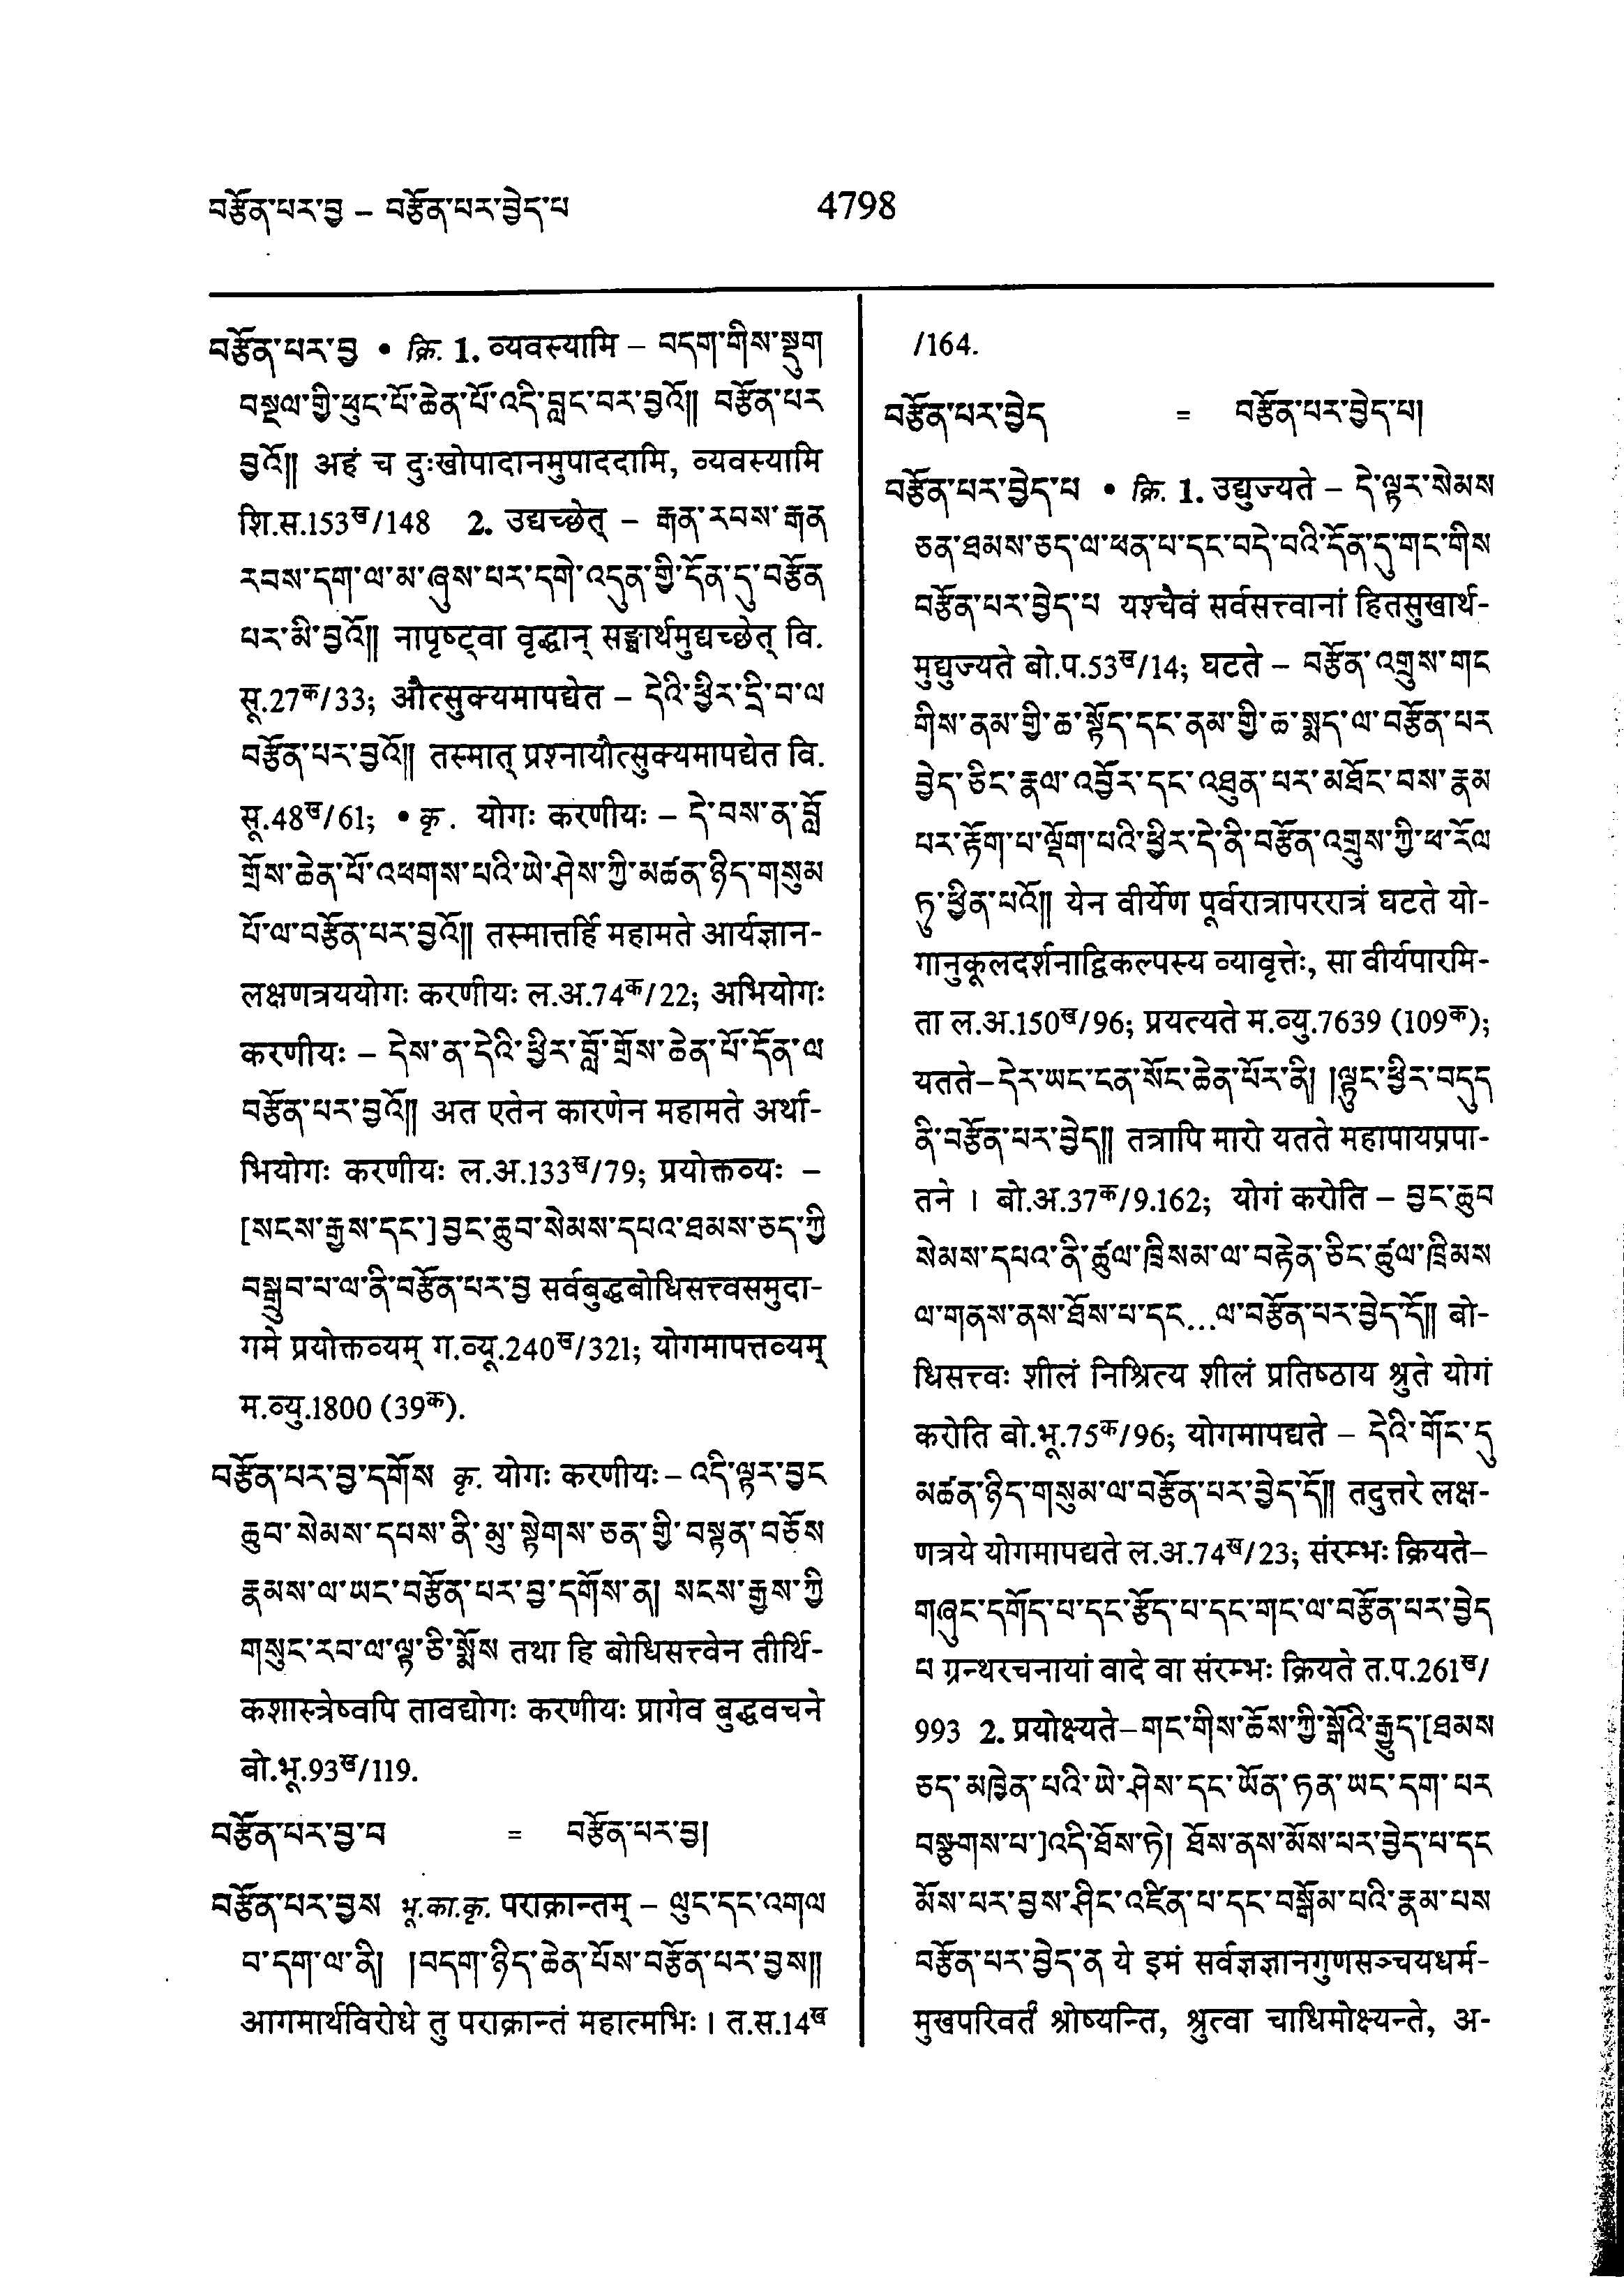 བརྩོན་པར་བྱ – བརྩོན་པར་བྱེད་པ
4798
བརྩོན་པར་བྱ • क्रि. 1. व्यवस्यामि – བདག་གིས་སྡུག
བསྔལ་གྱི་ཕུང་པོ་ཆེན་པོ་འདི་བླང་བར་བྱའོ།། བརྩོན་པར
བྱའོ།། अहं च दुःखोपादानमुपाददामि, व्यवस्यामि
शि.स.153ख/148 2. उद्यच्छेत् – རྒན་རབས་རྒན
རབས་དག་ལ་མ་ཞུས་པར་དགེ་འདུན་གྱི་དོན་དུ་བརྩོན
པར་མི་བྱའོ།། नापृष्ट्वा वृद्धान् सङ्घार्थमुद्यच्छेत् वि.
सू.27क/33; औत्सुक्यमापद्येत – དེའི་ཕྱིར་དྲི་བ་ལ
བརྩོན་པར་བྱའོ།། तस्मात् प्रश्नायौत्सुक्यमापद्येत वि.
सू.48ख/61; • कृ. योगः करणीयः – དེ་བས་ན་བློ
གྲོས་ཆེན་པོ་འཕགས་པའི་ཡེ་ཤེས་ཀྱི་མཚན་ཉིད་གསུམ
པོ་ལ་བརྩོན་པར་བྱའོ།། तस्मात्तर्हि महामते आर्यज्ञान-
लक्षणत्रययोगः करणीयः ल.अ.74क/22; अभियोगः
करणीयः – དེས་ན་དེའི་ཕྱིར་བློ་གྲོས་ཆེན་པོ་དོན་ལ
བརྩོན་པར་བྱའོ།། अत एतेन कारणेन महामते अर्था-
भियोगः करणीयः ल.अ.133ख/79; प्रयोक्तव्यः –
[སངས་རྒྱས་དང་]བྱང་ཆུབ་སེམས་དཔའ་ཐམས་ཅད་ཀྱི
བསྒྲུབ་པ་ལ་ནི་བརྩོན་པར་བྱ सर्वबुद्धबोधिसत्त्वसमुदा-
गमे प्रयोक्तव्यम् ग.व्यू.240ख/321; योगमापत्तव्यम्
म.व्यु.1800 (39क).
བརྩོན་པར་བྱ་དགོས कृ. योगः करणीयः – འདི་ལྟར་བྱང
ཆུབ་སེམས་དཔས་ནི་མུ་སྟེགས་ཅན་གྱི་བསྟན་བཅོས
རྣམས་ལ་ཡང་བརྩོན་པར་བྱ་དགོས་ན། སངས་རྒྱས་ཀྱི
གསུང་རབ་ལ་ལྟ་ཅི་སྨོས तथा हि बोधिसत्त्वेन तीर्थि-
कशास्त्रेष्वपि तावद्योगः करणीयः प्रागेव बुद्धवचने
बो.भू.93ख/119.
བརྩོན་པར་བྱ་བ = བརྩོན་པར་བྱ།
བརྩོན་པར་བྱས भू.का.कृ. पराक्रान्तम् – ལུང་དང་འགལ
བ་དག་ལ་ནི། །བདག་ཉིད་ཆེན་པོས་བརྩོན་པར་བྱས།།
आगमार्थविरोधे तु पराक्रान्तं महात्मभिः । त.स.14ख
/164.
བརྩོན་པར་བྱེད = བརྩོན་པར་བྱེད་པ།
བརྩོན་པར་བྱེད་པ • क्रि. 1. उद्युज्यते – དེ་ལྟར་སེམས
ཅན་ཐམས་ཅད་ལ་ཕན་པ་དང་བདེ་བའི་དོན་དུ་གང་གིས
བརྩོན་པར་བྱེད་པ यश्चैवं सर्वसत्त्वानां हितसुखार्थ-
मुद्युज्यते बो.प.53ख/14; घटते – བརྩོན་འགྲུས་གང
གིས་ནམ་གྱི་ཆ་སྟོད་དང་ནམ་གྱི་ཆ་སྨད་ལ་བརྩོན་པར
བྱེད་ཅིང་རྣལ་འབྱོར་དང་འཐུན་པར་མཐོང་བས་རྣམ
པར་རྟོག་པ་ལྡོག་པའི་ཕྱིར་དེ་ནི་བརྩོན་འགྲུས་ཀྱི་ཕ་རོལ
ཏུ་ཕྱིན་པའོ།། येन वीर्येण पूर्वरात्रापररात्रं घटते यो-
गानुकूलदर्शनाद्विकल्पस्य व्यावृत्तेः, सा वीर्यपारमि-
ता ल.अ.150ख/96; प्रयत्यते म.व्यु.7639 (109क);
यतते–དེར་ཡང་ངན་སོང་ཆེན་པོར་ནི། །ལྟུང་ཕྱིར་བདུད
ནི་བརྩོན་པར་བྱེད།། तत्रापि मारो यतते महापायप्रपा-
तने । बो.अ.37क/9.162; योगं करोति – བྱང་ཆུབ
སེམས་དཔའ་ནི་ཚུལ་ཁྲིསམ་ལ་བརྟེན་ཅིང་ཚུལ་ཁྲིམས
ལ་གནས་ནས་ཐོས་པ་དང...ལ་བརྩོན་པར་བྱེད་དོ།། बो-
धिसत्त्वः शीलं निश्रित्य शीलं प्रतिष्ठाय श्रुते योगं
करोति बो.भू.75क/96; योगमापद्यते – དེའི་གོང་དུ
མཚན་ཉིད་གསུམ་ལ་བརྩོན་པར་བྱེད་དོ།། तदुत्तरे लक्ष-
णत्रये योगमापद्यते ल.अ.74ख/23; संरम्भः क्रियते–
གཞུང་དགོད་པ་དང་རྩོད་པ་དང་གང་ལ་བརྩོན་པར་བྱེད
པ ग्रन्थरचनायां वादे वा संरम्भः क्रियते त.प.261ख/
993 2. प्रयोक्ष्यते–གང་གིས་ཆོས་ཀྱི་སྒོའི་རྒྱུད་[ཐམས
ཅད་མཁྱེན་པའི་ཡེ་ཤེས་དང་ཡོན་ཏན་ཡང་དག་པར
བསྩགས་པ་]འདི་ཐོས་ཏེ། ཐོས་ནས་མོས་པར་བྱེད་པ་དང
མོས་པར་བྱས་ཤིང་འཛིན་པ་དང་བསྒོམ་པའི་རྣམ་པས
བརྩོན་པར་བྱེད་ན ये इमं सर्वज्ञज्ञानगुणसञ्चयधर्म-
मुखपरिवर्तं श्रोष्यन्ति, श्रुत्वा चाधिमोक्ष्यन्ते, अ-